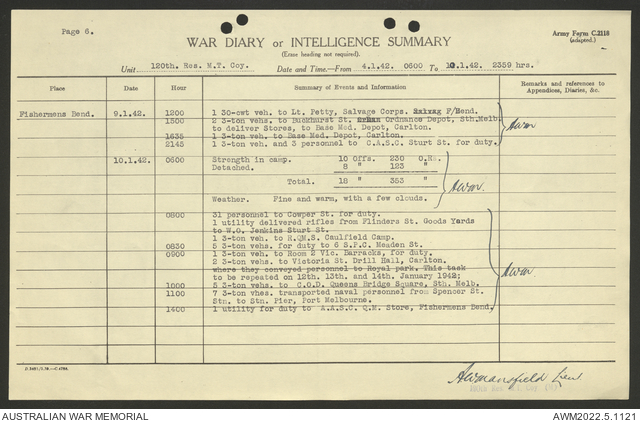 Page 6.
Army Form C.2118
(adapted.)
WAR DIARY or INTELLIGENCE SUMMARY
(Erase heading not required).
Unit 120th. Res. M.T. Coy. Date and Time.—From 4.1.42. 0600 To 10.1.42. 2359 hrs.
Place Date Hour Summary of Events and Information Remarks and references to
Appendices, Diaries, &c.
Fishermens Bend. 9.1.42. 1200 1 30-cwt veh. to Lt. Petty, Salvage Corps. F/Bend.
1500 2 3-ton vehs. to Buckhurst St. Ordnance Depot, Sth.Melb.
to deliver Stores, to Base Med. Depot, Carlton.
1635 1 3-ton veh. to Base Med. Depot, Carlton.
2145 1 3-ton veh. and 3 personnel to C.A.S.C. Sturt St. for duty.
10.1.42. 0600 Strength in camp. 10 Offs. 230 O.Rs.
Detached. 8 " 123 "
Total. 18 " 353 "
Weather. Fine and warm, with a few clouds.
0800 31 personnel to Cowper St. for duty.
1 utility delivered rifles from Flinders St. Goods Yards
to W.O. Jenkins Sturt St.
1 3-ton veh. to R.QMS. Caulfield Camp.
0830 5 3-ton vehs. for duty to 6 S.P.C. Meaden St.
0900 1 3-ton veh. to Room 2 Vic. Barracks, for duty.
2 3-ton vehs. to Victoria St. Drill Hall, Carlton.
where they conveyed personnel to Royal park. This task
to be repeated on 12th. 13th. and 14th. January 1942;
1000 5 3-ton vehs. to C.O.D. Queens Bridge Square, Sth. Melb.
1100 7 3-ton vhes. transported naval personnel from Spencer St.
Stn. to Stn. Pier, Port Melbourne.
1400 1 utility for duty to A.A.S.C. Q.M. Store, Fishermens Bend.
AWMansfield Lieut
AUSTRALIAN WAR MEMORIAL AWM2022.5.1121